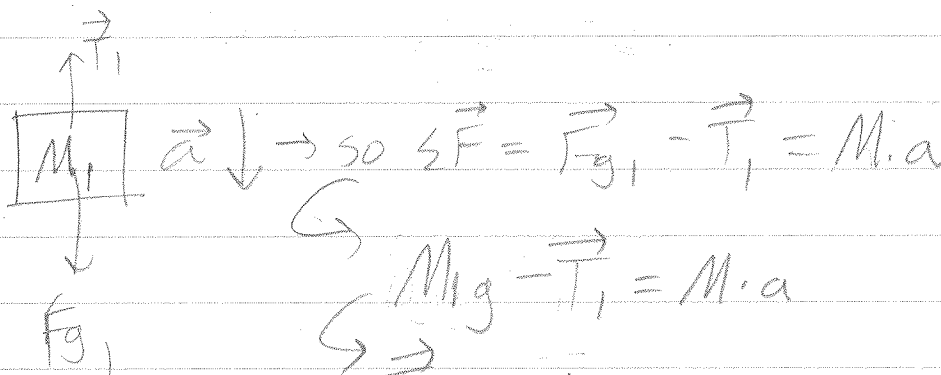 T₁
M₁ a ↓ → so ΣF = Fg₁ - T₁ = M·a
M₁g - T₁ = M·a
Fg₁